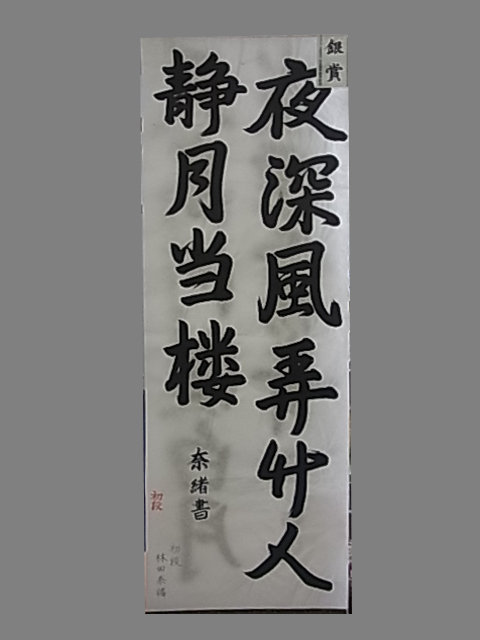 銀賞
夜深風弄竹人
静月当楼
奈緒書
初段
初段
林田奈緒